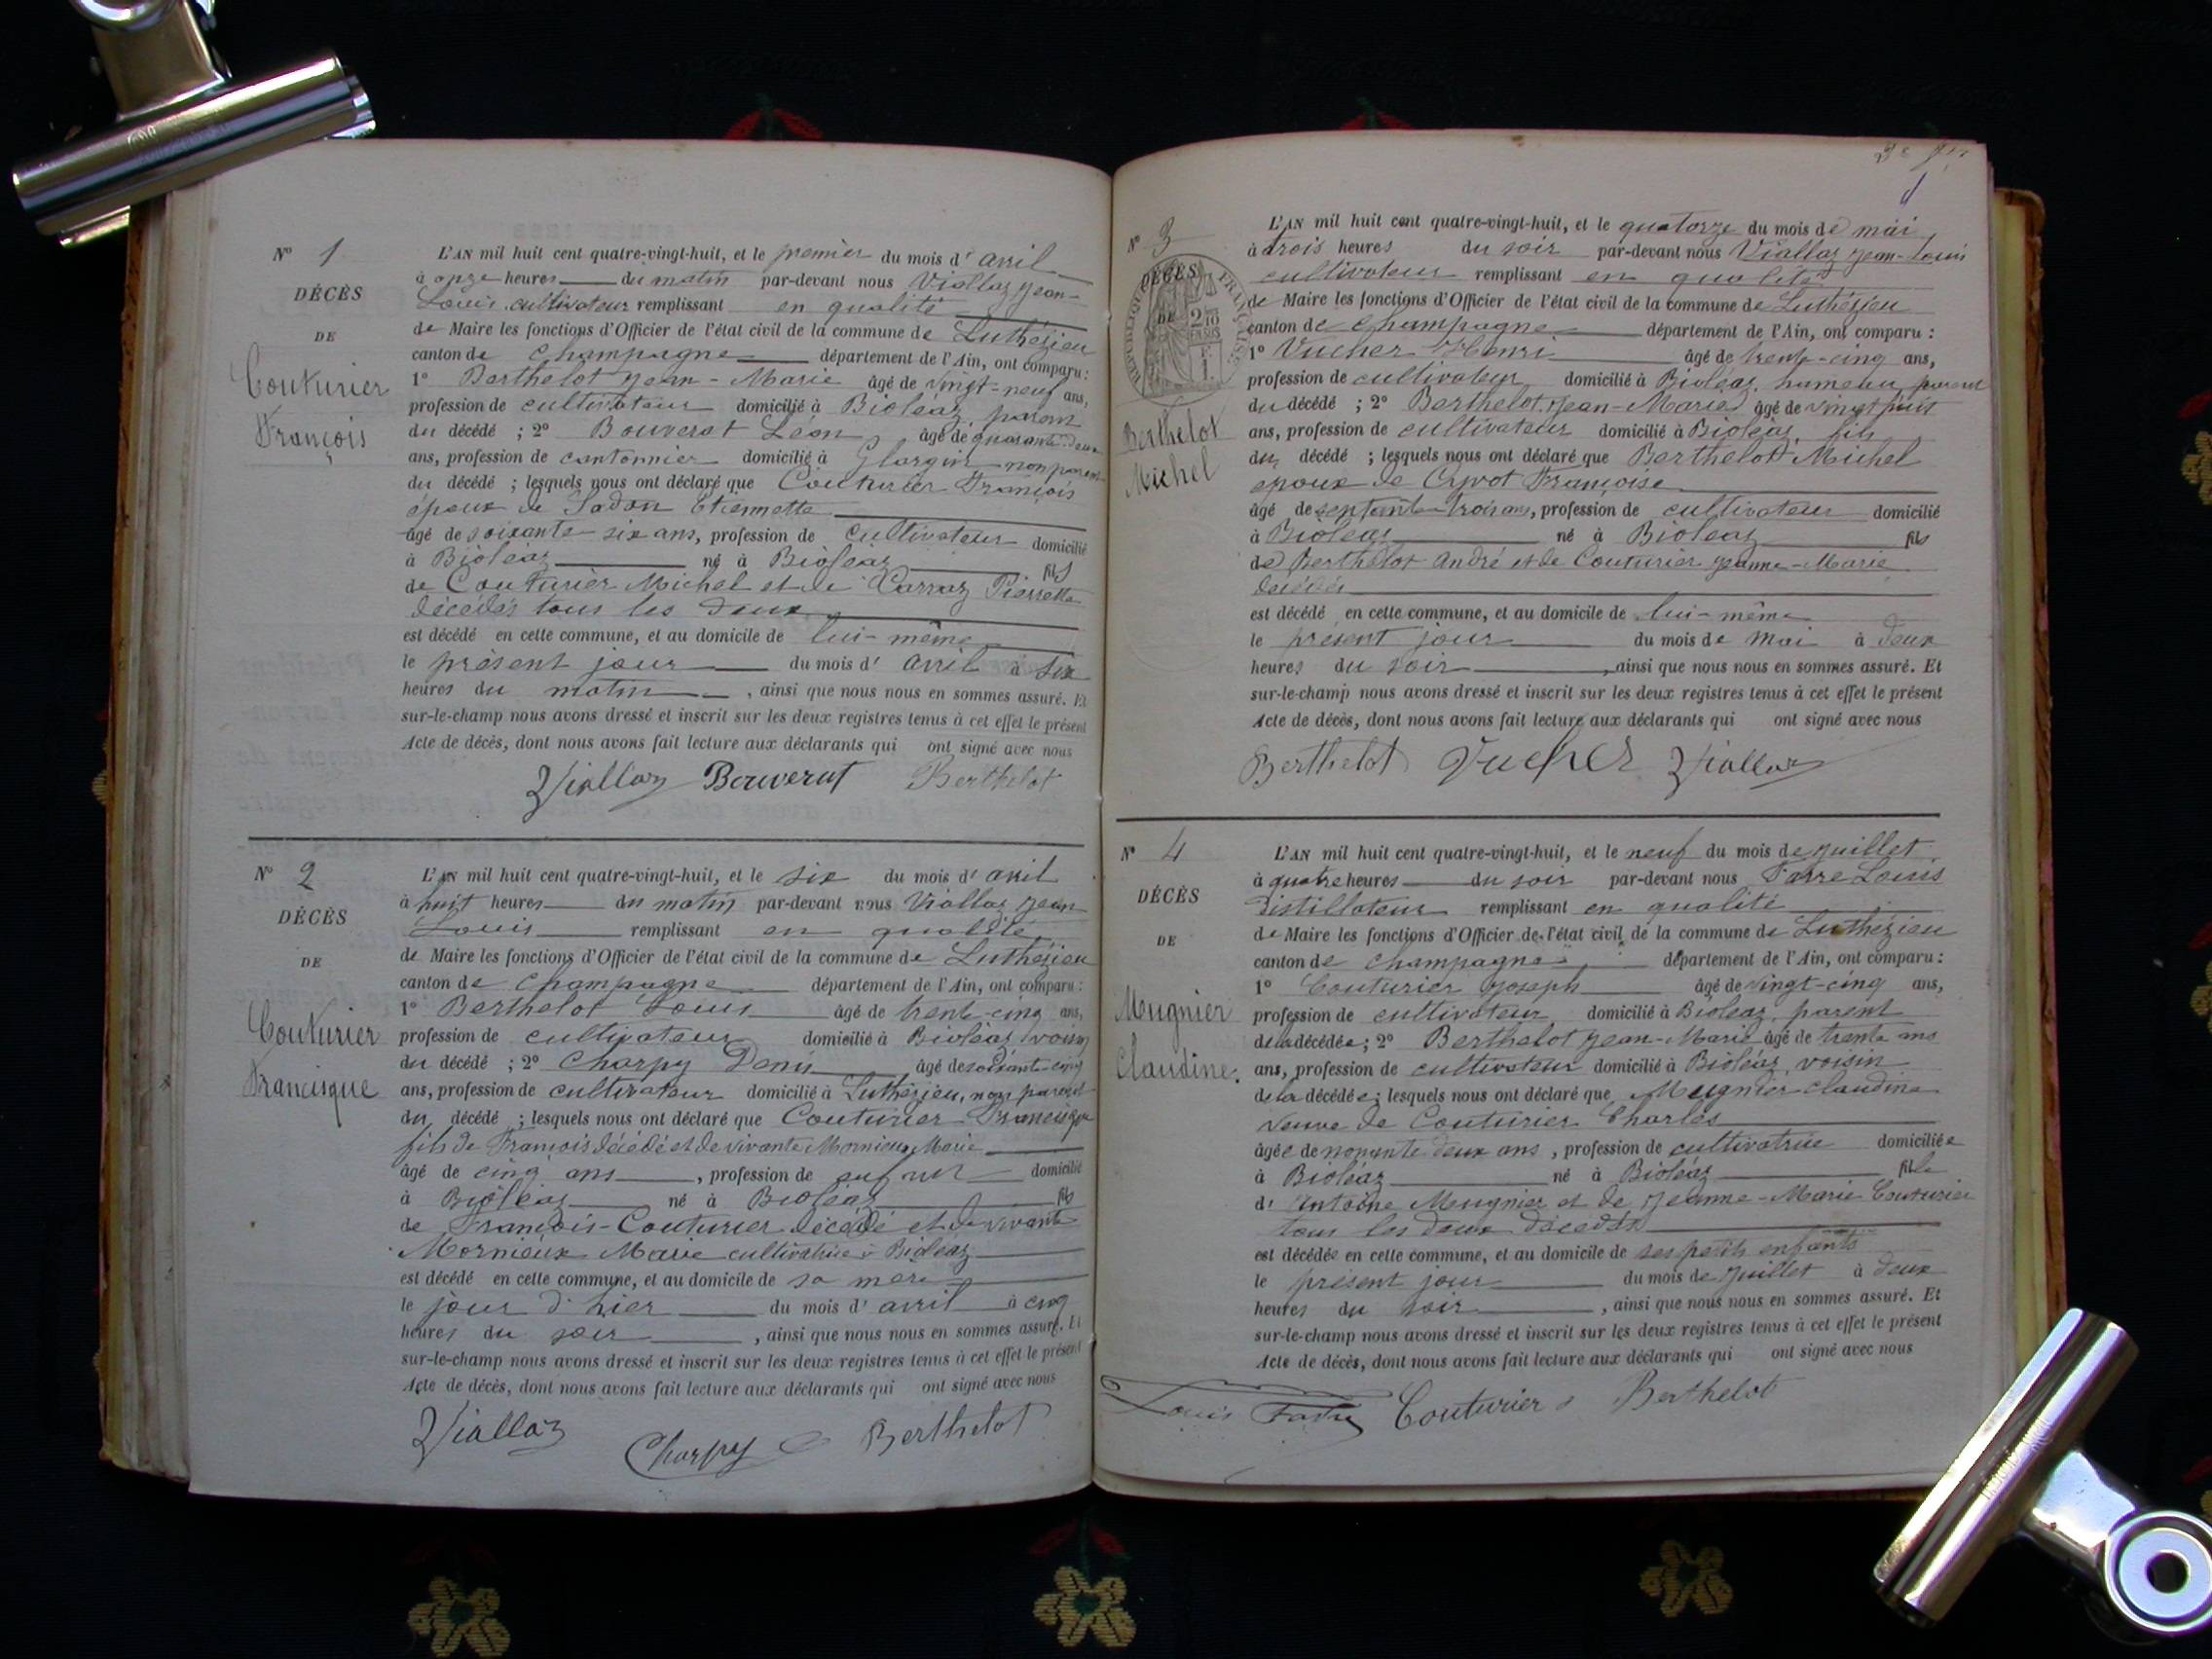 N° 1
DÉCÈS
DE
Couturier
François
L'AN mil huit cent quatre-vingt-huit, et le premier du mois d' avril
à onze heures du matin par-devant nous Viallaz Jean-
Louis cultivateur remplissant en qualité
de Maire les fonctions d'Officier de l'état civil de la commune de Luthézieu
canton de Champagne département de l'Ain, ont comparu :
1° Berthelot Jean-Marie âgé de vingt-neuf ans,
profession de cultivateur domicilié à Bioléaz, parent
du décédé ; 2° Bouverat Léon, âgé de quarante-deux
ans, profession de cantonnier domicilié à non parent
du décédé ; lesquels nous ont déclaré que Couturier François
époux de Etiennette
âgé de soixante-six ans, profession de cultivateur domicilié
à Bioléaz né à Bioléaz fils
de Couturier Michel et de Pierrette
décédés tous les deux
est décédé en cette commune, et au domicile de lui-même
le présent jour du mois d' avril à six
heures du matin, ainsi que nous nous en sommes assuré. Et
sur-le-champ nous avons dressé et inscrit sur les deux registres tenus à cet effet le présent
Acte de décès, dont nous avons fait lecture aux déclarants qui ont signé avec nous
Viallaz Bouverat Berthelot
N° 2
DÉCÈS
DE
Couturier
Francisque
L'AN mil huit cent quatre-vingt-huit, et le six du mois d' avril
à huit heures du matin par-devant nous Viallaz Jean
Louis remplissant en qualité
de Maire les fonctions d'Officier de l'état civil de la commune de Luthézieu
canton de Champagne département de l'Ain, ont comparu :
1° Berthelot Louis âgé de trente-cinq ans,
profession de cultivateur domicilié à Bioléaz voisin
du décédé ; 2° Charpy Denis âgé de soixante-cinq
ans, profession de cultivateur domicilié à Luthézieu, non parent
du décédé ; lesquels nous ont déclaré que Couturier Francisque
fils de François décédé et de vivante Mornieux Marie
âgé de cinq ans, profession de enfant domicilié
à Bioléaz né à Bioléaz fils
de François Couturier décédé et de vivante
Mornieux Marie cultivatrice à Bioléaz
est décédé en cette commune, et au domicile de sa mère
le jour d'hier du mois d' avril à cinq
heures du soir, ainsi que nous nous en sommes assuré. Et
sur-le-champ nous avons dressé et inscrit sur les deux registres tenus à cet effet le présent
Acte de décès, dont nous avons fait lecture aux déclarants qui ont signé avec nous
Viallaz Charpy Berthelot
N° 3
DÉCÈS
DE
RÉPUBLIQUE FRANÇAISE
Berthelot
Michel
L'AN mil huit cent quatre-vingt-huit, et le quatorze du mois de mai
à trois heures du soir par-devant nous Viallaz Jean-Louis
cultivateur remplissant en qualité
de Maire les fonctions d'Officier de l'état civil de la commune de Luthézieu
canton de Champagne département de l'Ain, ont comparu :
1° Vucher Henri âgé de trente-cinq ans,
profession de cultivateur domicilié à Bioléaz, hameau, parent
du décédé ; 2° Berthelot Jean-Marie âgé de vingt huit
ans, profession de cultivateur domicilié à Bioléaz, fils
du décédé ; lesquels nous ont déclaré que Berthelot Michel
époux de Françoise
âgé de septante-trois ans, profession de cultivateur domicilié
à Bioléaz né à Bioléaz fils
de Berthelot André et de Couturier Jeanne-Marie
décédés
est décédé en cette commune, et au domicile de lui-même
le présent jour du mois de mai à deux
heures du soir, ainsi que nous nous en sommes assuré. Et
sur-le-champ nous avons dressé et inscrit sur les deux registres tenus à cet effet le présent
Acte de décès, dont nous avons fait lecture aux déclarants qui ont signé avec nous
Berthelot Vucher Viallaz
N° 4
DÉCÈS
DE
Meugnier
Claudine.
L'AN mil huit cent quatre-vingt-huit, et le neuf du mois de juillet
à quatre heures du soir par-devant nous Louis
distillateur remplissant en qualité
de Maire les fonctions d'Officier de l'état civil de la commune de Luthézieu
canton de Champagne département de l'Ain, ont comparu :
1° Couturier Joseph âgé de vingt-cinq ans,
profession de cultivateur domicilié à Bioléaz, parent
de la décédée ; 2° Berthelot Jean-Marie âgé de trente ans
ans, profession de cultivateur domicilié à Bioléaz, voisin
de la décédée ; lesquels nous ont déclaré que Meugnier Claudine
veuve de Couturier Charles
âgée de nonante deux ans, profession de cultivatrice domiciliée
à Bioléaz né à Bioléaz fille
d' Antoine Meugnier et de Jeanne-Marie Couturier
tous les deux décédés
est décédée en cette commune, et au domicile de ses petits enfants
le présent jour du mois de juillet à deux
heures du soir, ainsi que nous nous en sommes assuré. Et
sur-le-champ nous avons dressé et inscrit sur les deux registres tenus à cet effet le présent
Acte de décès, dont nous avons fait lecture aux déclarants qui ont signé avec nous
Louis Couturier Berthelot